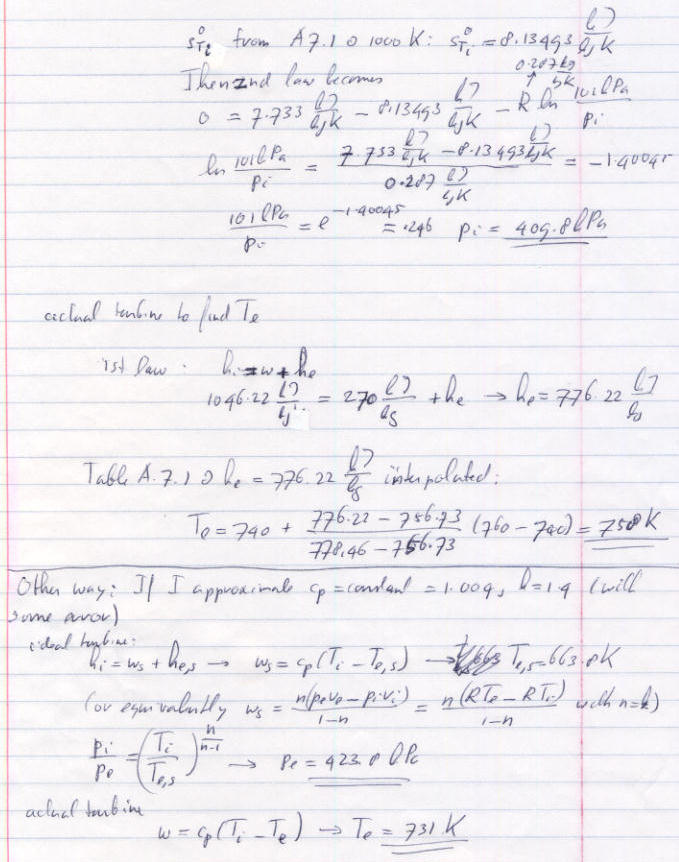 s°Ti from A7.1 @ 1000 K: s°Ti = 8.13493 kJ/kg K
0.287 kJ/kg K
Then 2nd law becomes
0 = 7.733 kJ/kg K - 8.13493 kJ/kg K - R ln 101 kPa/pi
ln 101 kPa/pi = (7.733 kJ/kg K - 8.13493 kJ/kg K)/(0.287 kJ/kg K) = -1.40045
101 kPa/pi = e^-1.40045 = .246 pi = 409.8 kPa
actual turbine to find Te
1st law: hi = w + he
1046.22 kJ/kg = 270 kJ/kg + he → he = 776.22 kJ/kg
Table A.7.1 @ he = 776.22 kJ/kg interpolated:
Te = 740 + (776.22 - 756.73)/(778.46 - 756.73) (760 - 740) = 758 K
Other way: If I approximate cp = constant = 1.004, k = 1.4 (with
some error)
ideal turbine:
hi = ws + he,s → ws = cp(Ti - Te,s) → Te,s = 663.0K
(or equivalently ws = n(peve - pivi)/(1-n) = n(RTe - RTi)/(1-n) with n=k)
pi/pe = (Ti/Te,s)^(n/(n-1)) → pe = 423.0 kPa
actual turbine
w = cp(Ti - Te) → Te = 731 K